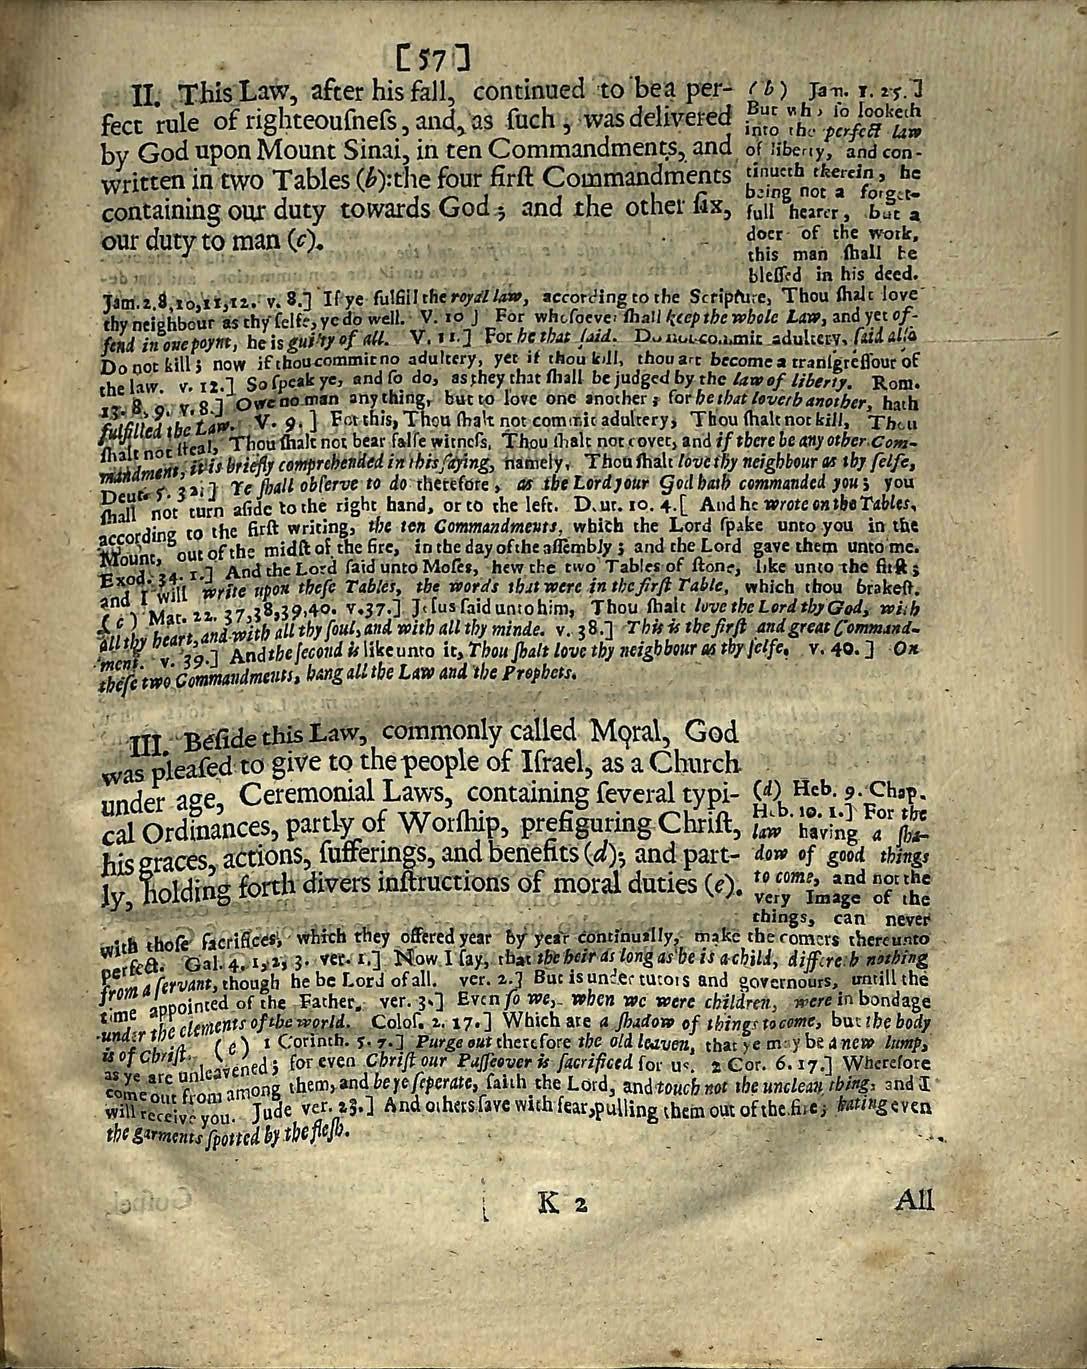 [57]
II. This Law, after his fall, continued to be a per-
fect rule of righteouſneſs, and, as ſuch, was delivered
by God upon Mount Sinai, in ten Commandments, and
written in two Tables (b): the four firſt Commandments
containing our duty towards God; and the other ſix,
our duty to man (c).
(b) Jam. 1. 25.]
But who ſo looketh
into the perfect law
of liberty, and con-
tinueth therein, he
being not a forget-
full hearer, but a
doer of the work,
this man ſhall be
bleſſed in his deed.
Jam. 2, 8, 10, 11, 12. v. 8.] If ye fulfill the royal law, according to the Scripture, Thou ſhalt love
thy neighbour as thy ſelfe, ye do well. V. 10] For whoſoever ſhall keep the whole Law, and yet of-
fend in one poynt, he is guilty of all. V. 11.] For he that ſaid. Do not commit adultery, ſaid alſo
Do not kill; now if thou commit no adultery, yet if thou kill, thou art become a tranſgreſſour of
the law. v. 12.] So ſpeak ye, and ſo do, as they that ſhall be judged by the law of liberty. Rom.
13. 8, 9. v. 8.] Owe no man any thing, but to love one another; for he that loveth another, hath
fulfilled the Law. V. 9.] For this, Thou ſhalt not commit adultery, Thou ſhalt not kill, Thou
ſhalt not ſteal, Thou ſhalt not bear falſe witneſs, Thou ſhalt not covet, and if there be any other Com-
mandment, it is briefly comprehended in this ſaying, namely, Thou ſhalt love thy neighbour as thy ſelfe,
Deut. 5. 32.] Ye ſhall obſerve to do therefore, as the Lord your God hath commanded you; you
ſhall not turn aſide to the right hand, or to the left. Deut. 10. 4.[ And he wrote on the Tables,
according to the firſt writing, the ten Commandments, which the Lord ſpake unto you in the
Mount, out of the midſt of the fire, in the day of the aſſembly; and the Lord gave them unto me.
Exod. 34. 1.] And the Lord ſaid unto Moſes, hew the two Tables of ſtone, like unto the firſt;
and I will write upon theſe Tables, the words that were in the firſt Table, which thou brakeſt.
(c) Mat. 22. 37, 38, 39, 40. v. 37.] Jeſus ſaid unto him, Thou ſhalt love the Lord thy God, with
all thy heart, and with all thy ſoul, and with all thy minde. v. 38.] This is the firſt and great Command-
ment. v. 39.] And the ſecond is like unto it, Thou ſhalt love thy neighbour as thy ſelfe. v. 40.] On
theſe two Commandments, hang all the Law and the Prophets.
III. Beſide this Law, commonly called Moral, God
was pleaſed to give to the people of Iſrael, as a Church
under age, Ceremonial Laws, containing ſeveral typi-
cal Ordinances, partly of Worſhip, prefiguring Chriſt,
his graces, actions, ſufferings, and benefits (d); and part-
ly, holding forth divers inſtructions of moral duties (e).
(d) Heb. 9. Chap.
Heb. 10. 1.] For the
law having a ſha-
dow of good things
to come, and not the
very Image of the
things, can never
with thoſe ſacrifices, which they offered year by year continually, make the comers thereunto
perfect. Gal. 4. 1, 2, 3. ver. 1.] Now I ſay, that the heir as long as he is a child, differeth nothing
from a ſervant, though he be Lord of all. ver. 2.] But is under tutors and governours, untill the
time appointed of the Father. ver. 3.] Even ſo we, when we were children, were in bondage
under the elements of the world. Coloſ. 2. 17.] Which are a ſhadow of things to come, but the body
is of Chriſt. (e) 1 Corinth. 5. 7.] Purge out therefore the old leaven, that ye may be a new lump,
as ye are unleavened; for even Chriſt our Paſſeover is ſacrificed for us. 2 Cor. 6. 17.] Wherefore
come out from among them, and be ye ſeperate, ſaith the Lord, and touch not the unclean thing, and I
will receive you. Jude ver. 23.] And others ſave with fear, pulling them out of the fire; hating even
the garments ſpotted by the fleſh.
K 2
All